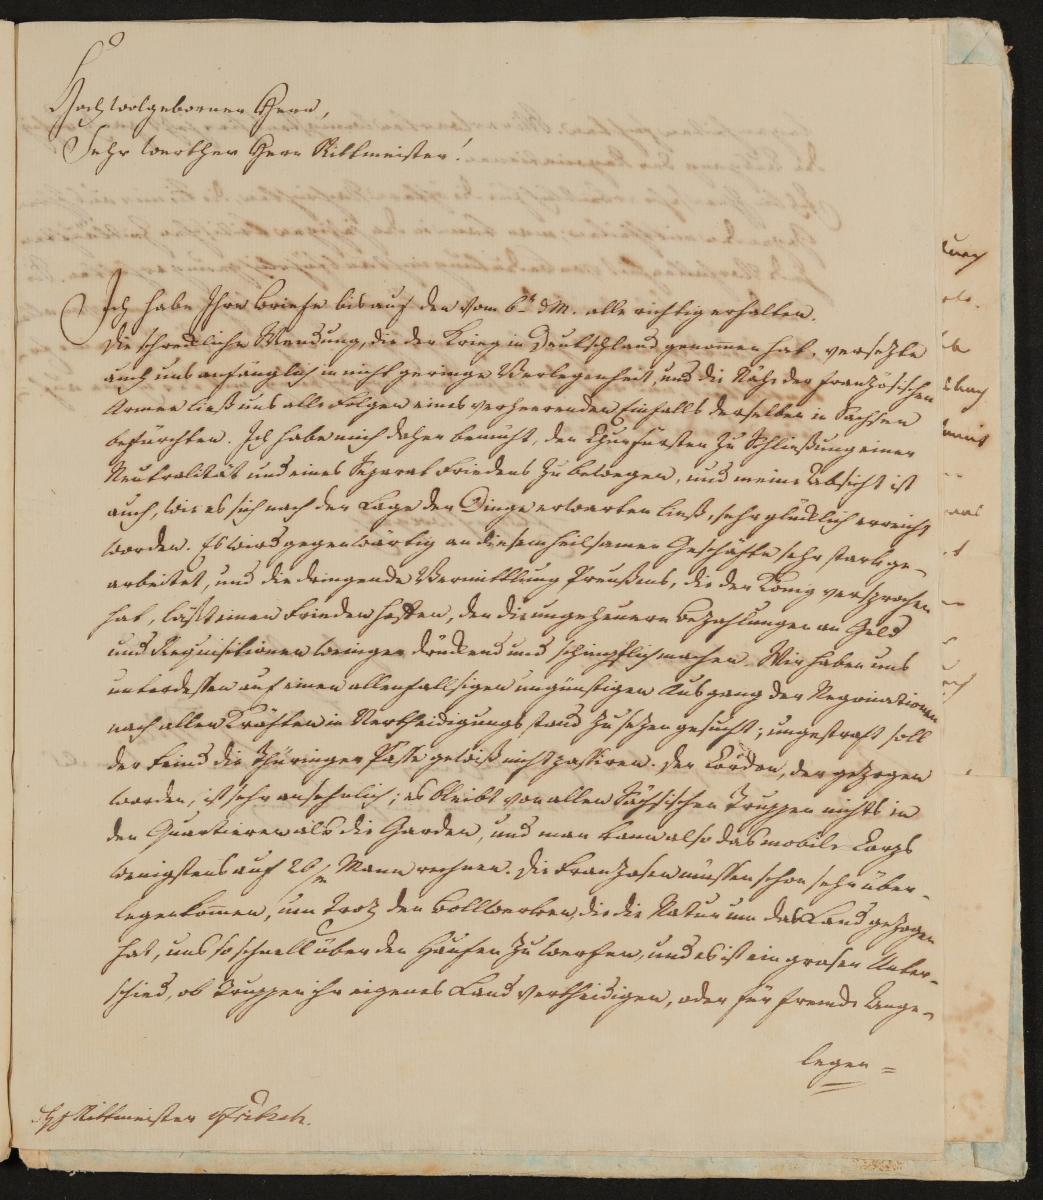 Hochwolgeborner Herr,
Sehr werther Herr Rittmeister!
Ich habe Ihre Briefe bis auf den vom 6t dM. alle richtig erhalten.
Die schrekliche Wendung, die der Krieg in Deutschland genommen hat, versetzte
auch uns anfänglich in nicht geringe Verlegenheit, und die Nähe der französischen
Armee ließ uns alle Folgen eines verheerenden Einfalls derselben in Sachsen
befürchten. Ich habe mich daher bemüht, den Churfürsten zu Schließung einer
Neutralität und eines Separat Friedens zu bewegen, und meine Absicht ist
auch, wie es sich nach der Lage der Dinge erwarten ließ, sehr glücklich erreicht
worden. Es wird gegenwärtig an diesem heilsamen Geschäfte sehr stark ge-
arbeitet, und die dringende Vermittlung Preußens, die der König versprochen
hat, läßt einen Frieden hoffen, den die ungeheuern Bezahlungen an Geld
und Requisitionen weniger drückend und schimpflich machen. Wir haben uns
unterdessen auf einen allenfallsigen ungünstigen Ausgang der Negociationen
nach allen Kräften in Vertheidigungsstand zu sezen gesucht; ungestraft soll
der Feind die Thüringer Pässe gewiß nicht passiren. Der Cordon, der gezogen
worden, ist sehr ansehnlich; es bleibt von allen Sächsischen Truppen nichts in
den Quartieren als die Garden, und man kann also das mobile Corps
wenigstens auf 20/m Mann rechnen. Die Franzosen müssen schon sehr über-
legen kommen, um Trotz den Bollwerken, die die Natur um das Land gezogen
hat, uns so schnell über den Haufen zu werfen, und es ist ein groser Unter-
schied, ob Truppen ihr eigenes Land vertheidigen, oder für fremde Ange-
legen=
Rittmeister